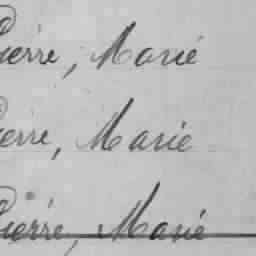 Pierre, Marie
Pierre, Marie
Pierre, Marie